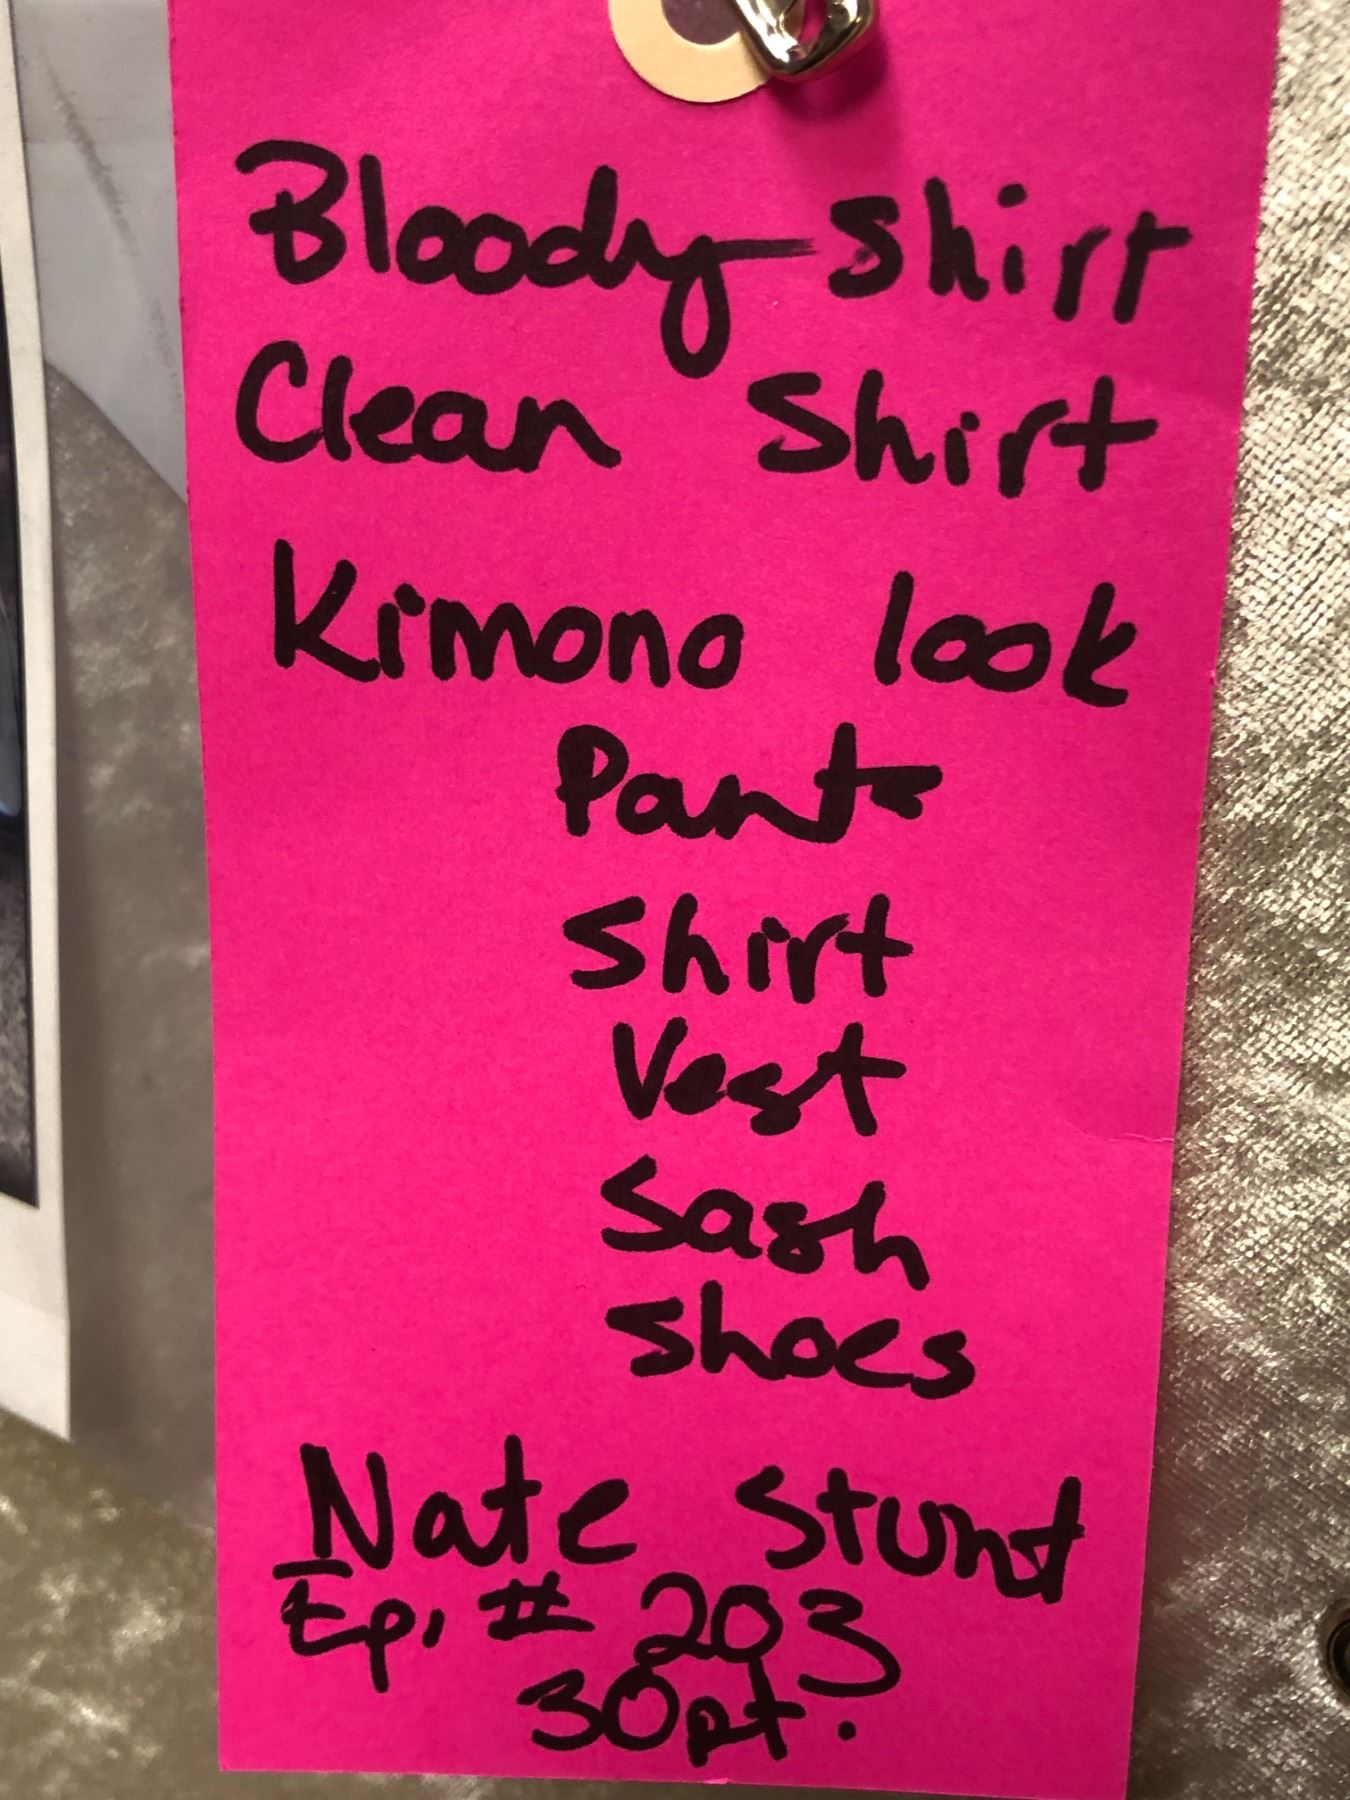 Bloody shirt
Clean Shirt
Kimono look
Pants
Shirt
Vest
Sash
Shoes
Nate Stunt
Ep. # 203
30pt.